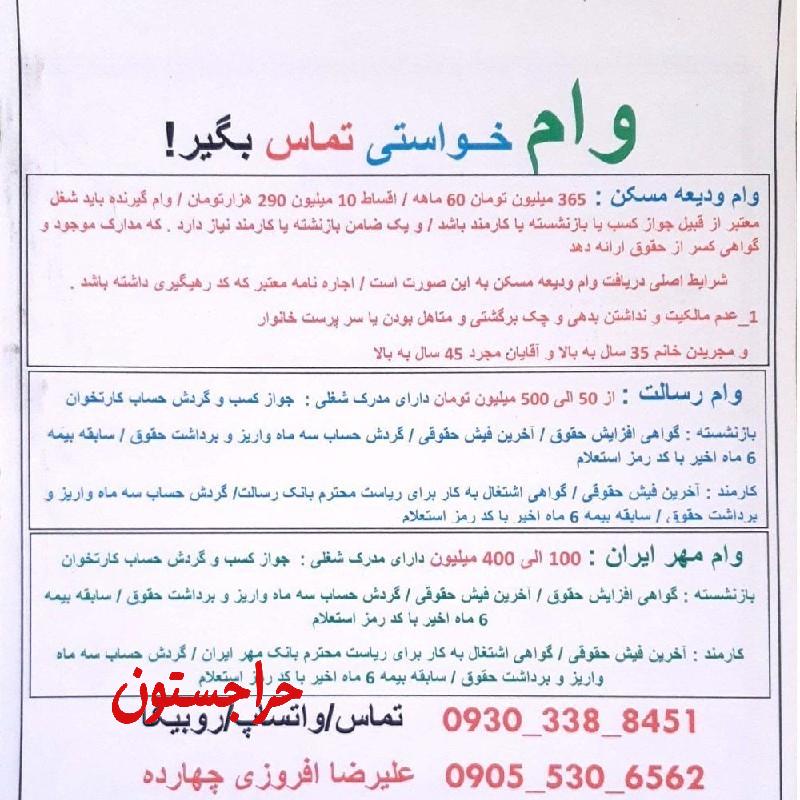 وام خواستی تماس بگیر!
وام ودیعه مسکن : 365 میلیون تومان 60 ماهه / اقساط 10 میلیون 290 هزارتومان / وام گیرنده باید شغل
معتبر از قبیل جواز کسب یا بازنشسته یا کارمند باشد / و یک ضامن بازنشته یا کارمند نیاز دارد . که مدارک موجود و
گواهی کسر از حقوق ارائه دهد
شرایط اصلی دریافت وام ودیعه مسکن به این صورت است / اجاره نامه معتبر که کد رهگیری داشته باشد .
1_عدم مالکیت و نداشتن بدهی و چک برگشتی و متاهل بودن یا سر پرست خانوار
و مجریدن خانم 35 سال به بالا و آقایان مجرد 45 سال به بالا
وام رسالت : از 50 الی 500 میلیون تومان دارای مدرک شغلی : جواز کسب و گردش حساب کارتخوان
بازنشسته : گواهی افزایش حقوق / آخرین فیش حقوقی / گردش حساب سه ماه واریز و برداشت حقوق / سابقه بیمه
6 ماه اخیر با کد رمز استعلام
کارمند : آخرین فیش حقوقی / گواهی اشتغال به کار برای ریاست محترم بانک رسالت/ گردش حساب سه ماه واریز و
برداشت حقوق / سابقه بیمه 6 ماه اخیر با کد رمز استعلام
وام مهر ایران : 100 الی 400 میلیون دارای مدرک شغلی : جواز کسب و گردش حساب کارتخوان
بازنشسته : گواهی افزایش حقوق / آخرین فیش حقوقی / گردش حساب سه ماه واریز و برداشت حقوق / سابقه بیمه
6 ماه اخیر با کد رمز استعلام
کارمند : آخرین فیش حقوقی / گواهی اشتغال به کار برای ریاست محترم بانک مهر ایران / گردش حساب سه ماه
واریز و برداشت حقوق / سابقه بیمه 6 ماه اخیر با کد رمز استعلام
حراجستون
تماس/واتساپ/روبیکا 0930_338_8451
علیرضا افروزی چهارده 0905_530_6562